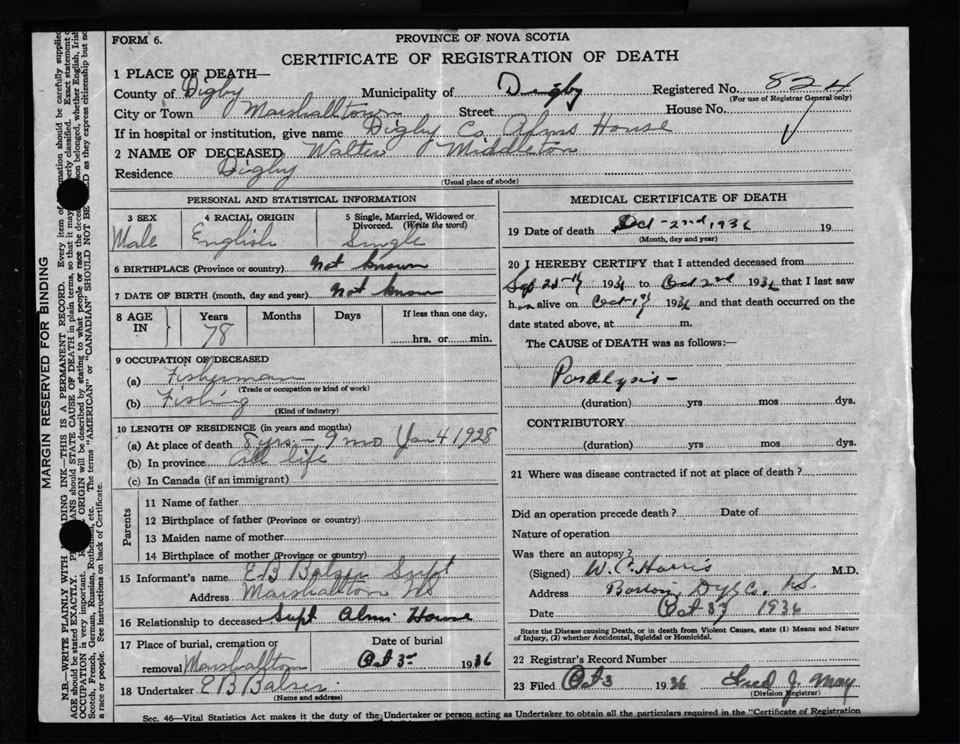 FORM 6.
PROVINCE OF NOVA SCOTIA
CERTIFICATE OF REGISTRATION OF DEATH
1 PLACE OF DEATH—
County of Digby Municipality of Digby Registered No. 824
(For use of Registrar General only)
City or Town Marshalltown Street House No.
If in hospital or institution, give name Digby Co. Alms House
2 NAME OF DECEASED Walter Middleton
Residence Digby
(Usual place of abode)
PERSONAL AND STATISTICAL INFORMATION
3 SEX
Male
4 RACIAL ORIGIN
English
5 Single, Married, Widowed or Divorced. (Write the word)
Single
6 BIRTHPLACE (Province or country) not known
7 DATE OF BIRTH (month, day and year) not know
8 AGE IN
Years
78
Months
Days
If less than one day,
hrs. or min.
9 OCCUPATION OF DECEASED
(a) Fisherman
(Trade or occupation or kind of work)
(b) Fishing
(Kind of industry)
10 LENGTH OF RESIDENCE (in years and months)
(a) At place of death 8 yrs – 9 mo Jan 4 1928
(b) In province all life
(c) In Canada (if an immigrant)
Parents
11 Name of father
12 Birthplace of father (Province or country)
13 Maiden name of mother
14 Birthplace of mother (Province or country)
15 Informant's name E B Balser Supt
Address Marshallton NS
16 Relationship to deceased Supt Alms House
17 Place of burial, cremation or
removal Marshallton
Date of burial
Oct 3 1936
18 Undertaker E B Balser
(Name and address)
MEDICAL CERTIFICATE OF DEATH
19 Date of death Oct – 2nd, 1936 19
(Month, day and year)
20 I HEREBY CERTIFY that I attended deceased from
Sep 1936 to Oct 2nd 1936 that I last saw
him alive on Oct 1st 1936 and that death occurred on the
date stated above, at m.
The CAUSE of DEATH was as follows:—
Paralysis –
(duration) yrs mos dys.
CONTRIBUTORY
(duration) yrs mos dys.
21 Where was disease contracted if not at place of death?
Did an operation precede death? Date of
Nature of operation
Was there an autopsy?
(Signed) W. C. Harris M.D.
Address Co. NS.
Date Oct 3 1936
State the Disease causing Death, or in death from Violent Causes, state (1) Means and Nature
of Injury, (2) whether Accidental, Suicidal or Homicidal.
22 Registrar's Record Number
23 Filed Oct 3 1936 Fred J. May
(Division Registrar)
Sec. 46—Vital Statistics Act makes it the duty of the Undertaker or person acting as Undertaker to obtain all the particulars required in the "Certificate of Registration
MARGIN RESERVED FOR BINDING
N.B.—WRITE PLAINLY WITH INK—THIS IS A PERMANENT RECORD. Every item of information should be carefully supplied.
AGE should be stated EXACTLY. should state CAUSE OF DEATH in plain terms, so that it may be properly classified. Exact statement of
OCCUPATION is very important. ORIGIN will be described by stating to what people or race the deceased belonged, whether English, Irish,
Scotch, French, German, Russian, Ruthenian, etc. The terms "AMERICAN" or "CANADIAN" SHOULD NOT BE USED as they express citizenship but not
a race or people. See instructions on back of Certificate.